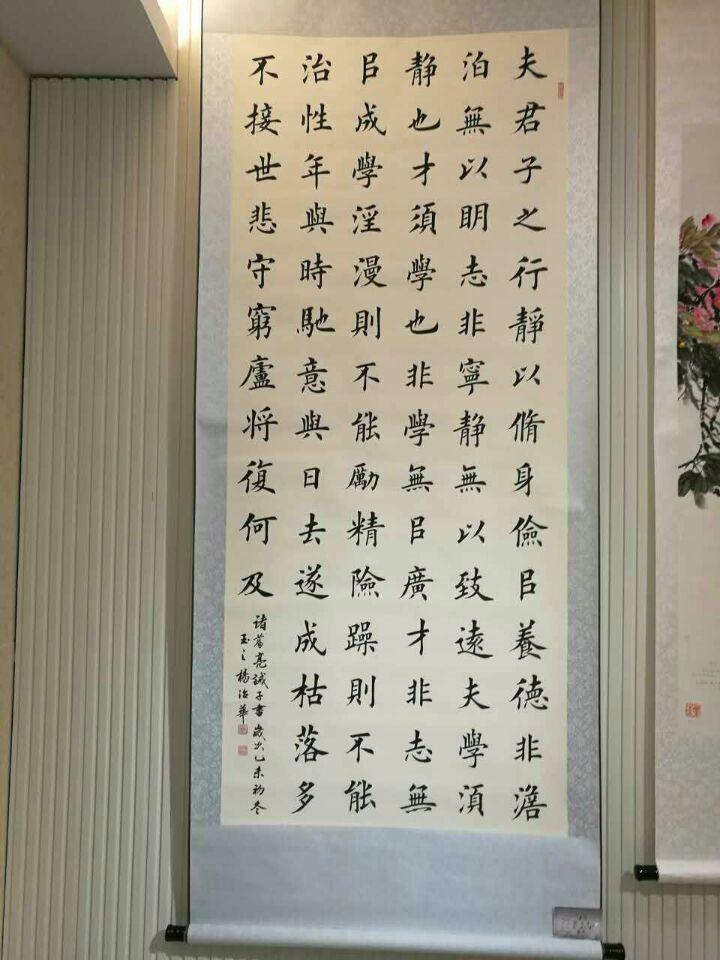 夫君子之行靜以脩身儉㠯養德非澹
泊無以眀志非寧静無以致遠夫學湏
静也才須學也非學無㠯廣才非志無
㠯成學淫漫則不能勵精險躁則不能
治性年與時馳意與日去遂成枯落多
不接世悲守窮廬将復何及
諸葛亮誡子書歲次乙未初冬
玉之楊治華